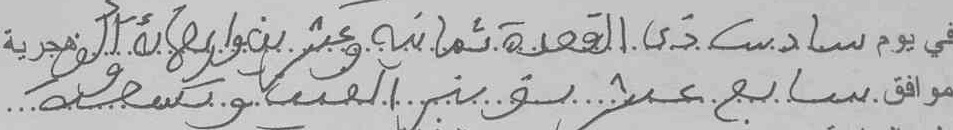 في يوم سادس ذي القعدة ثمانية وعشرين واربعمائة الف هجرية
موافق سابع عشر نونبر الفين وسبعة